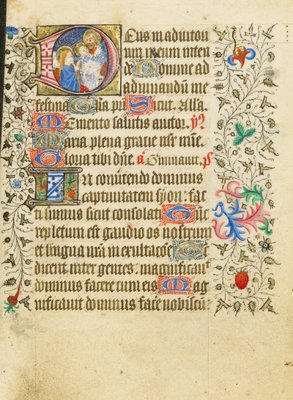 Deus in adiutou
rium meum inten
de Domine ad
adiuuandum me
festina Gloria pri Sicut. Alla.
Memento salutis auctor. ym
Maria plena gracie mr̄ mie
Gloria tibi dn̄e a Dum aut. ps
In conuertendo dominus
captiuitatem syon: fac
ti sumus sicut consolati Tunc
repletum est gaudio os nostrum
et lingua nr̄a in exultacione
dicent inter gentes. magnifi
dominus facere cum eis Ma
gnificauit dominus facere nobiscu